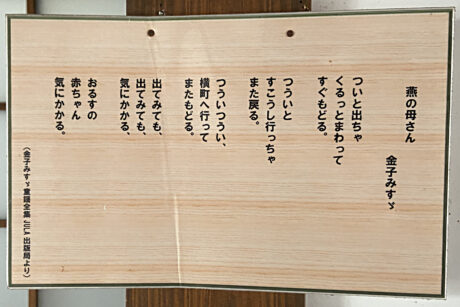 燕の母さん
金子みすゞ
ついと出ちゃ
くるっとまわって
すぐもどる。
つういと
すこうし行っちゃ
また戻る。
つういつうい、
横町へ行って
またもどる。
出てみても、
出てみても、
気にかかる、
おるすの
赤ちゃん
気にかかる。
（金子みすゞ童謡全集 JULA出版局より）